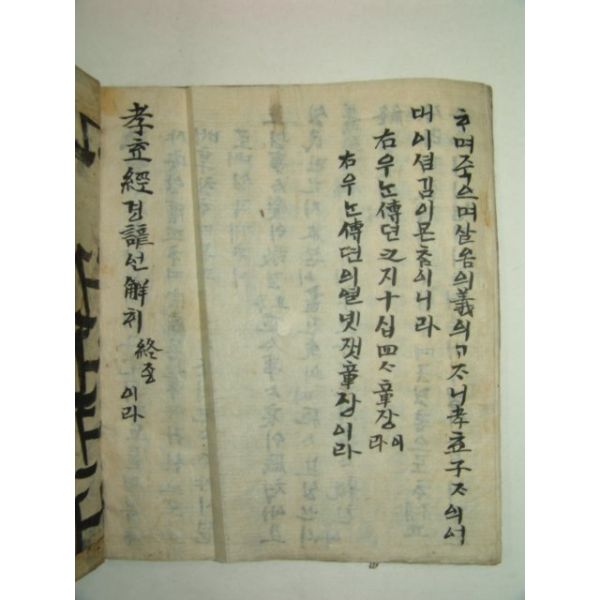 ᄒᆞ며죽으며살옴의義의ᄀᆞᄌᆞ니孝효子ᄌᆞ의어
버이셤김이ᄆᆞᄎᆞᆷ이니라
右우ᄂᆞᆫ傳뎐之지十십四ᄉᆞ章장이라
右우ᄂᆞᆫ傳뎐의열넷잿章장이라
孝효經경諺언解ᄒᆡ終죵이라